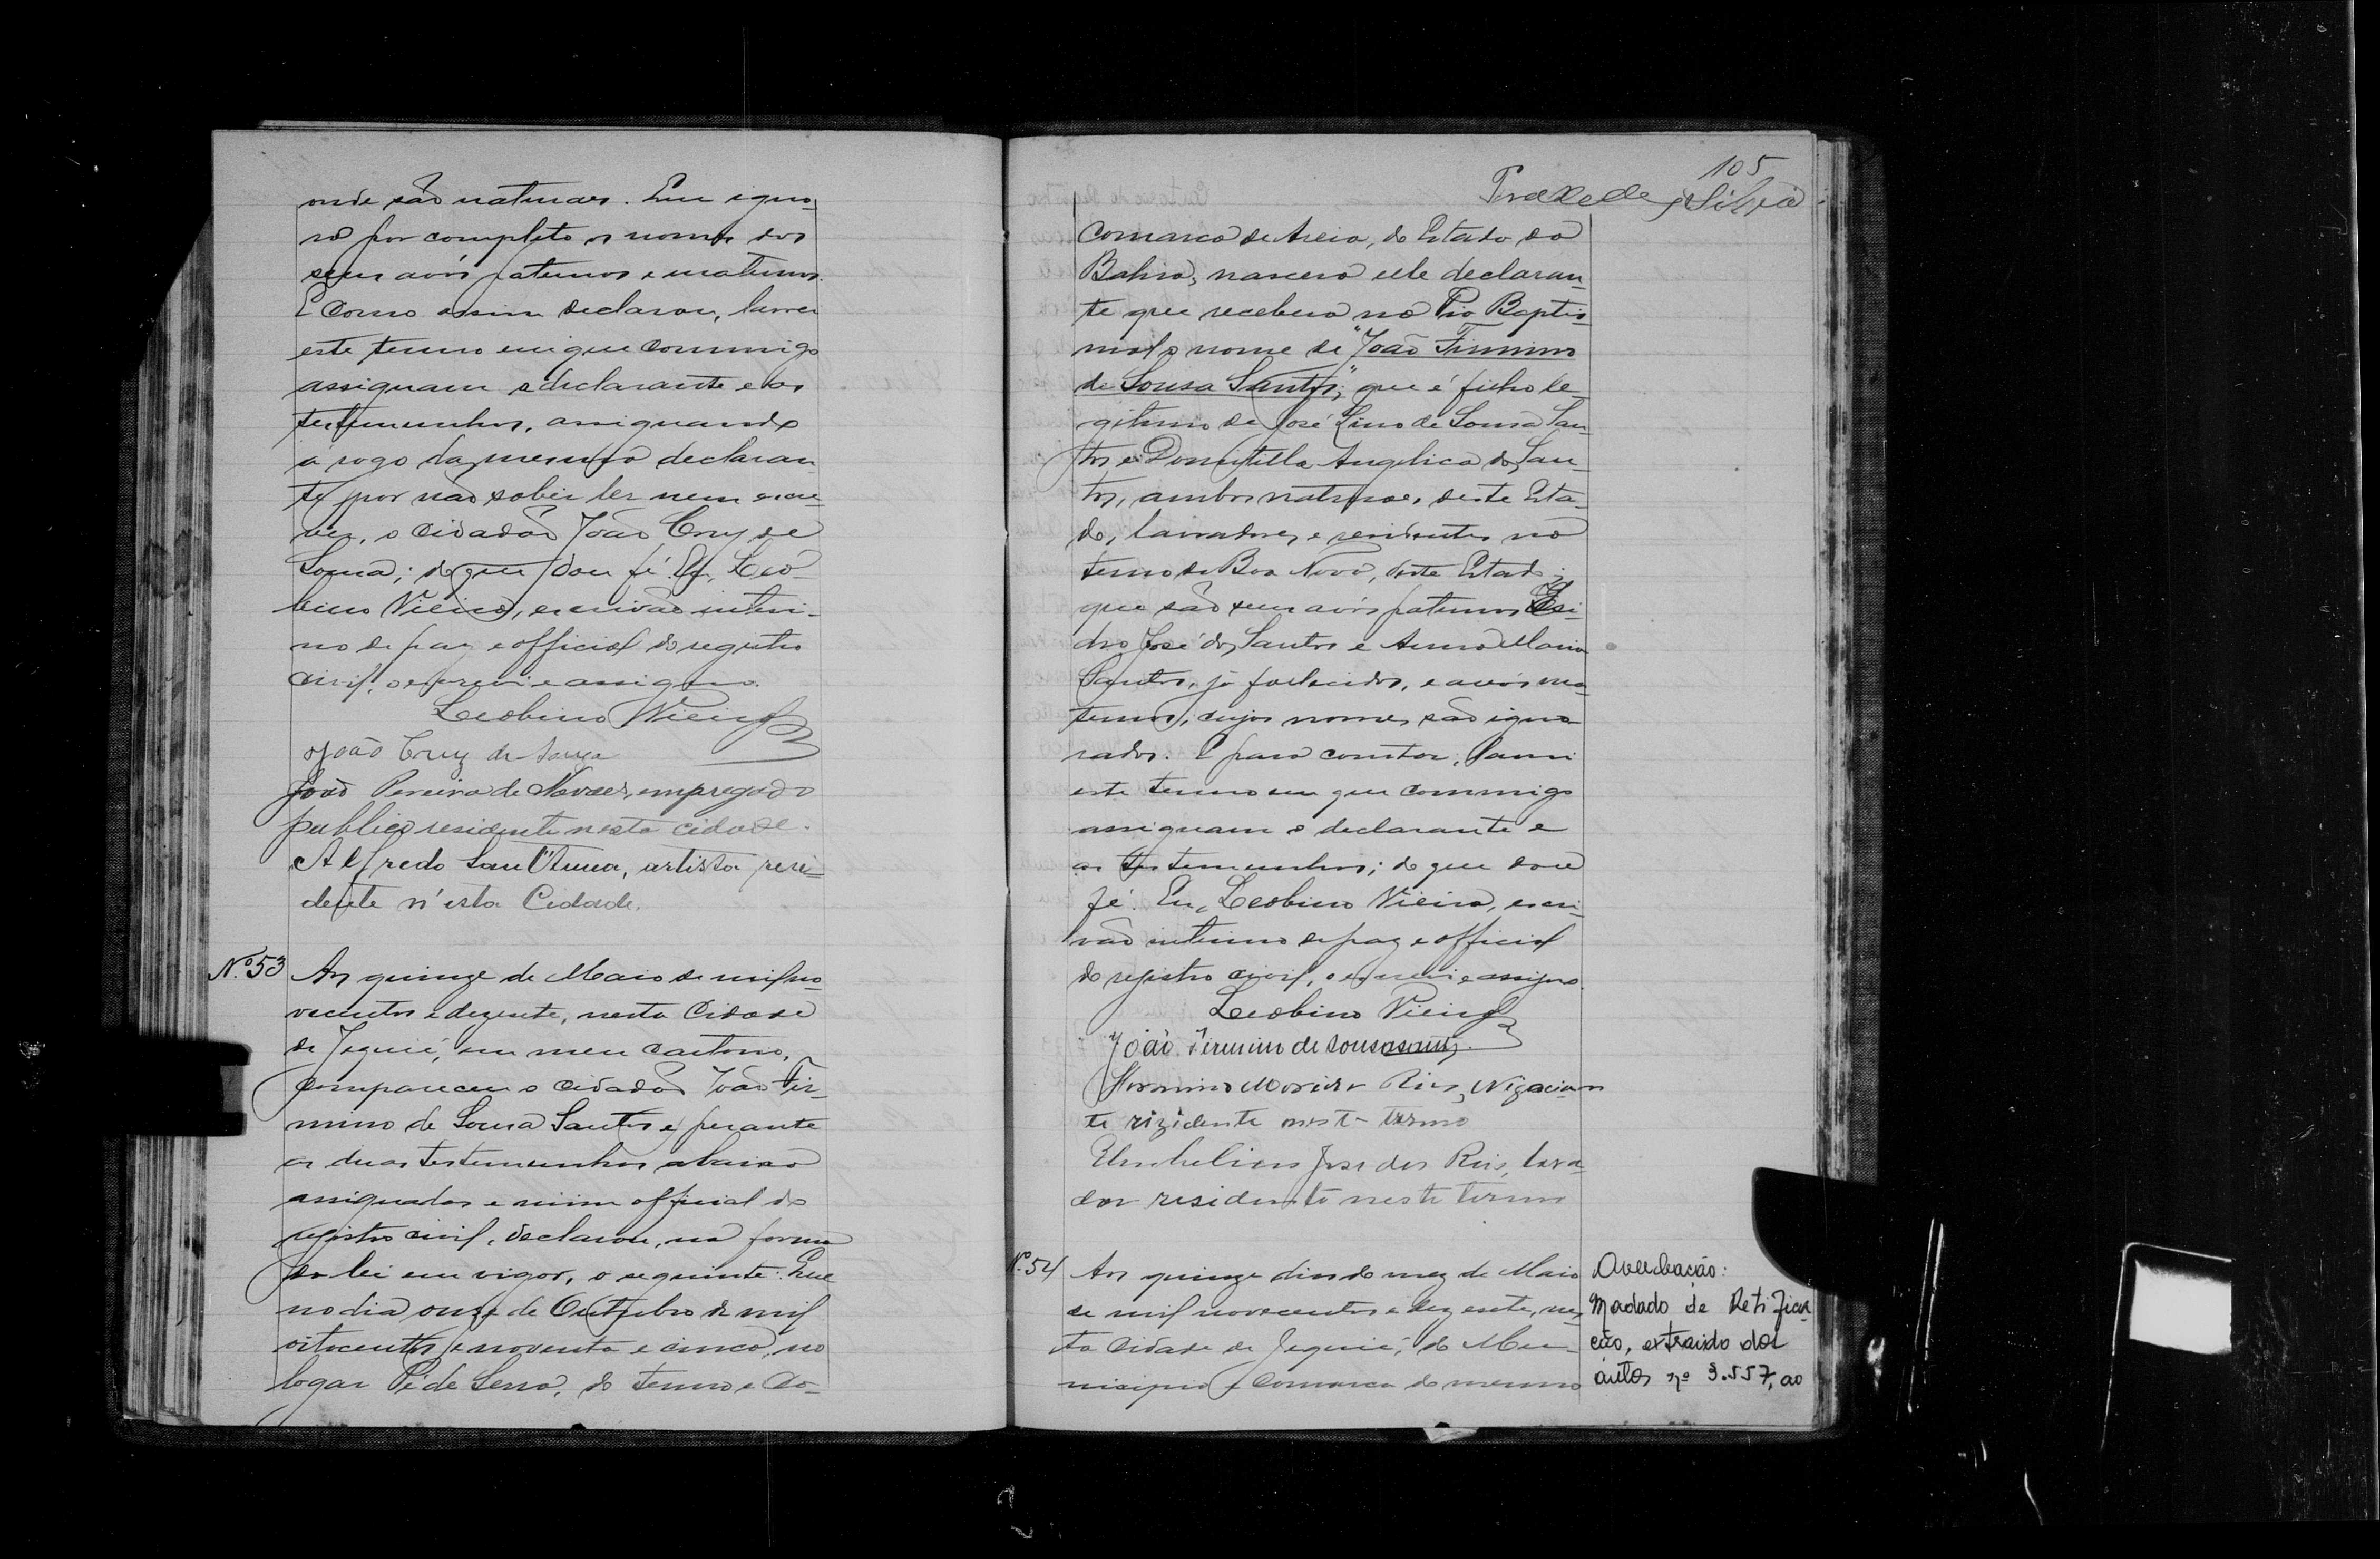 onde são naturaes. Que igno-
ra por completo os nomes dos
seus avós paternos e maternos.
E como assim declarou, lavrei
este termo em que commigo
assignam a declarante e as
testemunhas, assignando
a rogo da mesma declaran
te, por não saber ler nem escre-
ver, o cidadão João Cruz de
Sousa; do que dou fé. Eu, Leo-
bino Vieira, escrivão interi-
no de paz e official do registro
civil, o escrevi e assigno.
Leobino Vieira
João Cruz de Souza
João Pereira de Novaes, empregado
publico residente nesta cidade.
Alfredo Sant'Anna, artista resi-
dente n'esta Cidade.
Nº 53 Aos quinze de Maio de mil no-
vecentos e dezesete, nesta Cidade
de Jequié, em meu cartorio,
compareceu o cidadão João Fir-
mino de Sousa Santos e, perante
as duas testemunhas abaixo
assignadas e mim official do
registro civil, declarou, na forma
da lei em vigor, o seguinte: Que
no dia onze de Outubro de mil
oitocentos e noventa e cinco, no
logar Pé de Serra, do termo e Co-
105
Praxedes Silva
comarca de Areia, do Estado da
Bahia, nascera elle declaran-
te que recebera na Pia Baptis-
mal o nome de "João Firmino
de Sousa Santos"; que é filho le-
gitimo de José Lino de Sousa San-
tos e Domitilla Angelica dos San-
tos, ambos naturaes deste Esta-
do, lavradores e residentes no
termo de Boa Nova, deste Estado;
que são seus avós paternos Isi-
dro José dos Santos e Anna Maria
Santos, já fallecidos, e avós ma-
ternos, cujos nomes são igno-
rados. E para constar, lavrei
este termo em que commigo
assignam o declarante e
as testemunhas; do que dou
fé. Eu, Leobino Vieira, escri-
vão interino de paz e official
do registro civil, o escrevi e assigno.
Leobino Vieira
João Firmino de Sousa Santos
Moreira Reis, Negocian
te rizidente neste termo
José dos Reis, lavra-
dor residente neste termo
Nº 54 Aos quinze dias do mez de Maio
de mil novecentos e dezesete, nes-
ta Cidade de Jequié, do Mu-
nicipio e Comarca do mesmo
Averbação:
Madado de Retifica-
ção, extraido dos
autos nº 3.557, ao